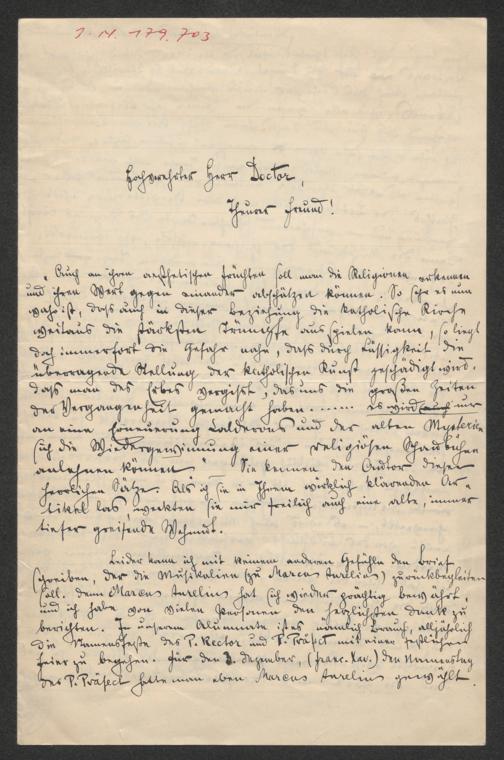 J. N. 179.703
Hochverehrter Herr Doctor,
Theurer Freund!
„Auch an ihren aesthetischen Früchten soll man die Religionen erkennen
und ihren Wert gegen einander abschätzen können. So sehr es nun
wahr ist, dass auch in dieser Beziehung die katholische Kirche
weitaus die stärksten Trümpfe ausspielen kann, so liegt
doch immerfort die Gefahr nahe, dass durch Lässigkeit die
überragende Stellung der katholischen Kunst geschädigt wird,
dass man des Erbes vergisst, das uns die großen Zeiten
der Vergangenheit gemacht haben. ...... es wird nur
an eine Erneuerung Calderons und der alten Mysterien
sich die Wiedergewinnung einer religiösen Schaubühne
anlehnen können." Sie kennen den Autor dieser
herrlichen Sätze. Als ich sie in Ihrem wirklich klärenden Ar-
tikel las, weckten sie mir freilich auch eine alte, immer
tiefer greifende Wehmut.
Leider kann ich mit keinem anderen Gefühle den Brief
schreiben, der die Musikalien (zu Marcus Aurelius) zurückbegleiten
soll. Denn Marcus Aurelius hat sich wieder prächtig bewährt,
und ich habe von vielen Personen den herzlichsten Dank zu
berichten. In unserem Alumnate ist es nämlich Brauch, alljährlich
die Namensfeste des P. Rector und P. Präfect mit einer festlichen
Feier zu begehen. Für den 3. Dezember, (Franc. Xav.) den Namenstag
des P. Präfect hatte man eben Marcus Aurelius gewählt.